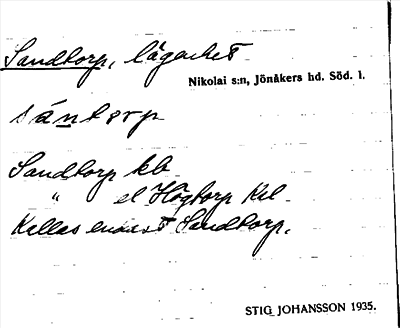 Sandtorp, lägenhet
Nikolai s:n, Jönåkers hd. Söd. l.
sántorp
Sandtorp kb
" el Högtorp Kel
Kallas endast Sandtorp.
STIG JOHANSSON 1935.